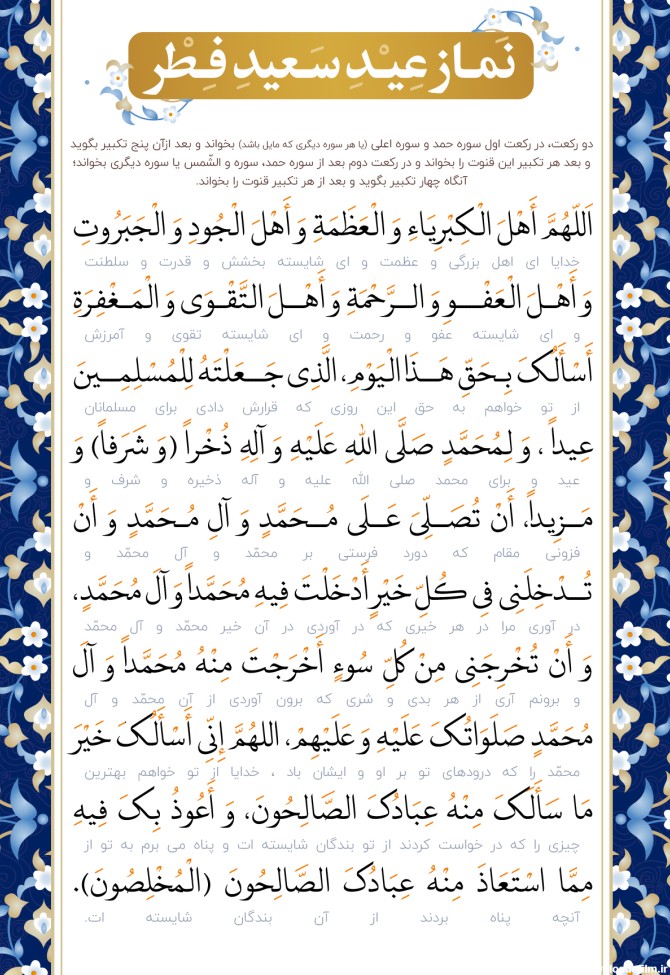 نَمازِ عِیْدِ سَعیدِ فِطْر
دو رکعت، در رکعت اول سوره حمد و سوره اعلی (یا هر سوره دیگری که مایل باشد) بخواند و بعد ازآن پنج تکبیر بگوید
و بعد هر تکبیر این قنوت را بخواند و در رکعت دوم بعد از سوره حمد، سوره و الشّمس یا سوره دیگری بخواند؛
آنگاه چهار تکبیر بگوید و بعد از هر تکبیر قنوت را بخواند.
اَللّهُمَّ أَهْلَ الْکِبْرِیَاءِ وَ الْعَظَمَةِ وَ أَهْلَ الْجُودِ وَ الْجَبَرُوتِ
خدایا ای اهل بزرگی و عظمت و ای شایسته بخشش و قدرت و سلطنت
وَ أَهْلَ الْعَفْوِ وَ الرَّحْمَةِ وَ أَهْلَ التَّقْوَی وَ الْمَغْفِرَةِ
و ای شایسته عفو و رحمت و ای شایسته تقوی و آمرزش
أَسْأَلُکَ بِحَقِّ هَذَا الْیَوْمِ، الَّذِی جَعَلْتَهُ لِلْمُسْلِمِینَ
از تو خواهم به حق این روزی که قرارش دادی برای مسلمانان
عِیداً ، وَ لِمُحَمَّدٍ صَلَّی اللهِ عَلَیْهِ وَ آلِهِ ذُخْراً (وَ شَرَفاً) وَ
عید و برای محمد صلی الله علیه و آله ذخیره و شرف و
مَزِیداً، أَنْ تُصَلِّیَ عَلَی مُحَمَّدٍ وَ آلِ مُحَمَّدٍ وَ أَنْ
فزونی مقام که دورد فرستی بر محمّد و آل محمّد و
تُدْخِلَنِی فِی کُلِّ خَیْرٍ أَدْخَلْتَ فِیهِ مُحَمَّداً وَ آلَ مُحَمَّدٍ،
در آوری مرا در هر خیری که در آوردی در آن خیر محمّد و آل محمّد
وَ أَنْ تُخْرِجَنِی مِنْ کُلِّ سُوءٍ أَخْرَجْتَ مِنْهُ مُحَمَّداً وَ آلَ
و برونم آری از هر بدی و شری که برون آوردی از آن محمّد و آل
مُحَمَّدٍ صَلَوَاتُکَ عَلَیْهِ وَ عَلَیْهِمْ، اللهُمَّ إِنِّی أَسْأَلُکَ خَیْرَ
محمّد را که درودهای تو بر او و ایشان باد ، خدایا از تو خواهم بهترین
مَا سَأَلَکَ مِنْهُ عِبَادُکَ الصَّالِحُونَ، وَ أَعُوذُ بِکَ فِیهِ
چیزی را که در خواست کردند از تو بندگان شایسته ات و پناه می برم به تو از
مِمَّا اسْتَعَاذَ مِنْهُ عِبَادُکَ الصَّالِحُونَ (الْمُخْلِصُونَ).
آنچه پناه بردند از آن بندگان شایسته ات.